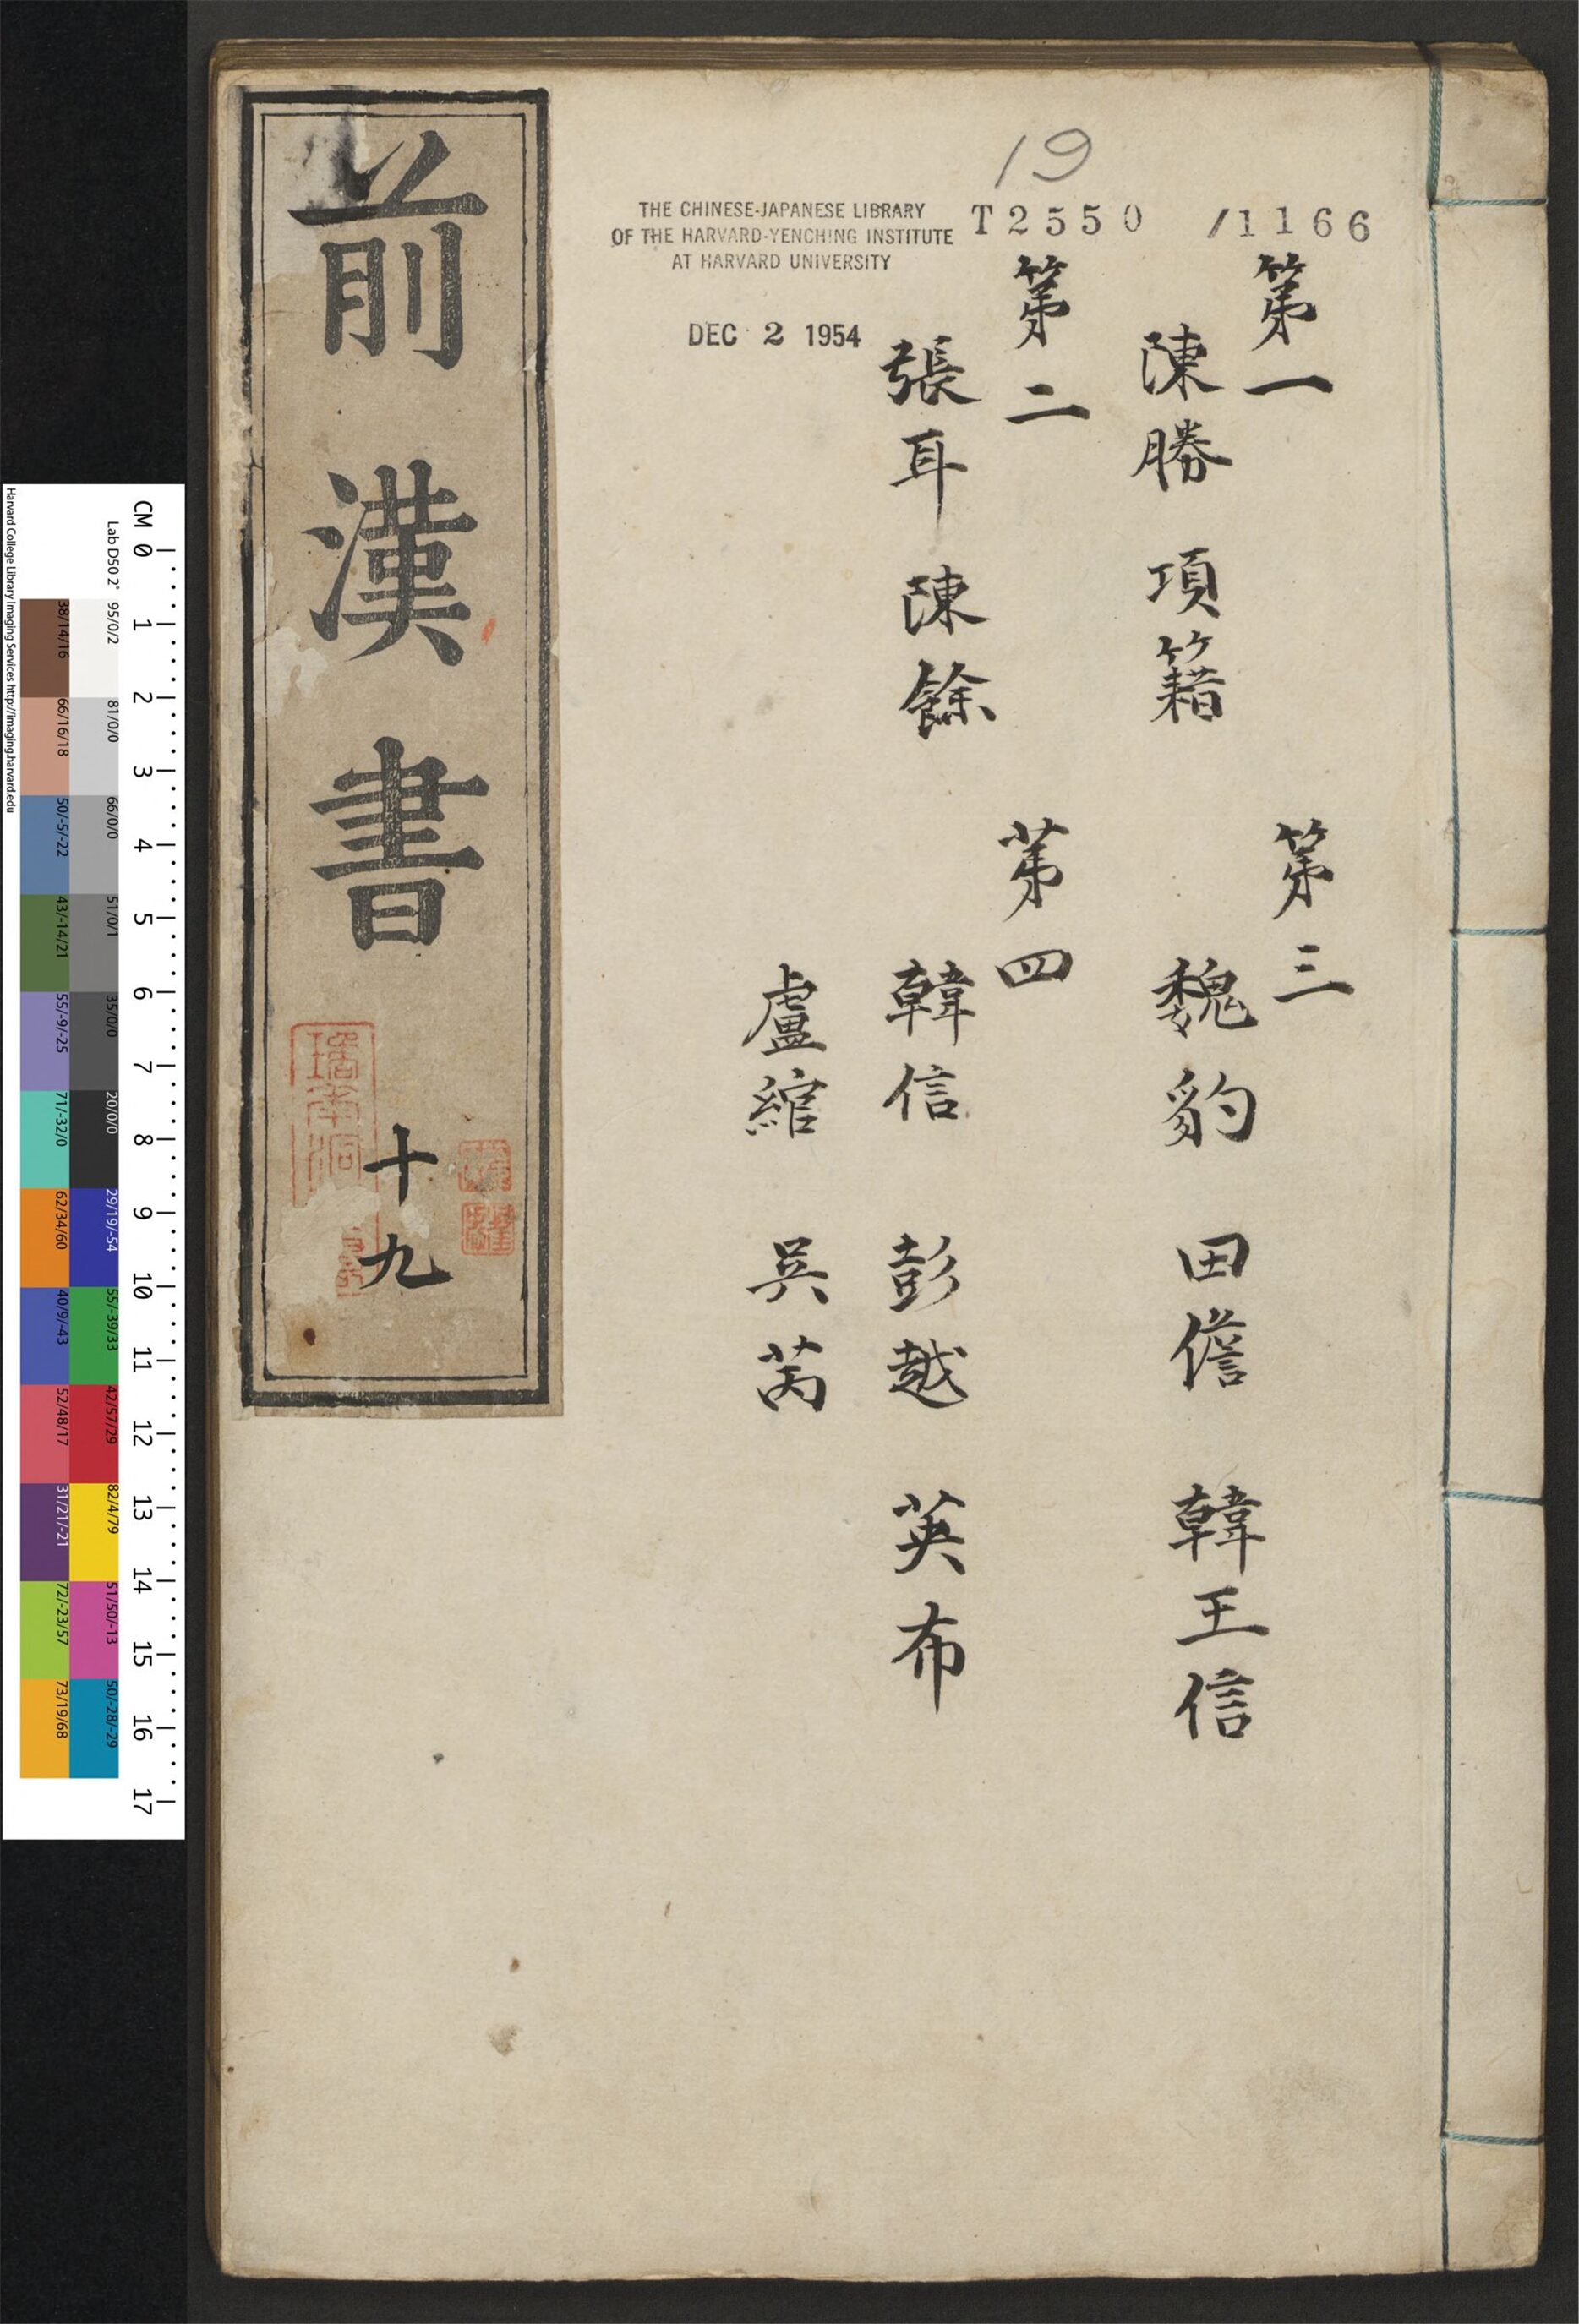 19
THE CHINESE-JAPANESE LIBRARY
OF THE HARVARD-YENCHING INSTITUTE
AT HARVARD UNIVERSITY
T2550 /1166
DEC 2 1954
第一
陳勝 項籍
第二
張耳 陳餘
第三
魏豹 田儋 韓王信
第四
韓信 彭越 英布
盧綰 吳芮
前漢書
十九
CM 0 1 2 3 4 5 6 7 8 9 10 11 12 13 14 15 16 17
Lab D50 2° 95/0/2 81/0/0 66/0/0 51/0/1 35/0/0 20/0/0 29/19/-54 55/-39/33 42/57/29 82/4/79 51/50/-13 50/-28/-29
38/14/16 66/16/18 50/-5/-22 43/-14/21 55/-9/-25 71/-32/0 62/34/60 40/9/-43 52/48/17 31/21/-21 72/-23/57 73/19/68
Harvard College Library Imaging Services http://imaging.harvard.edu